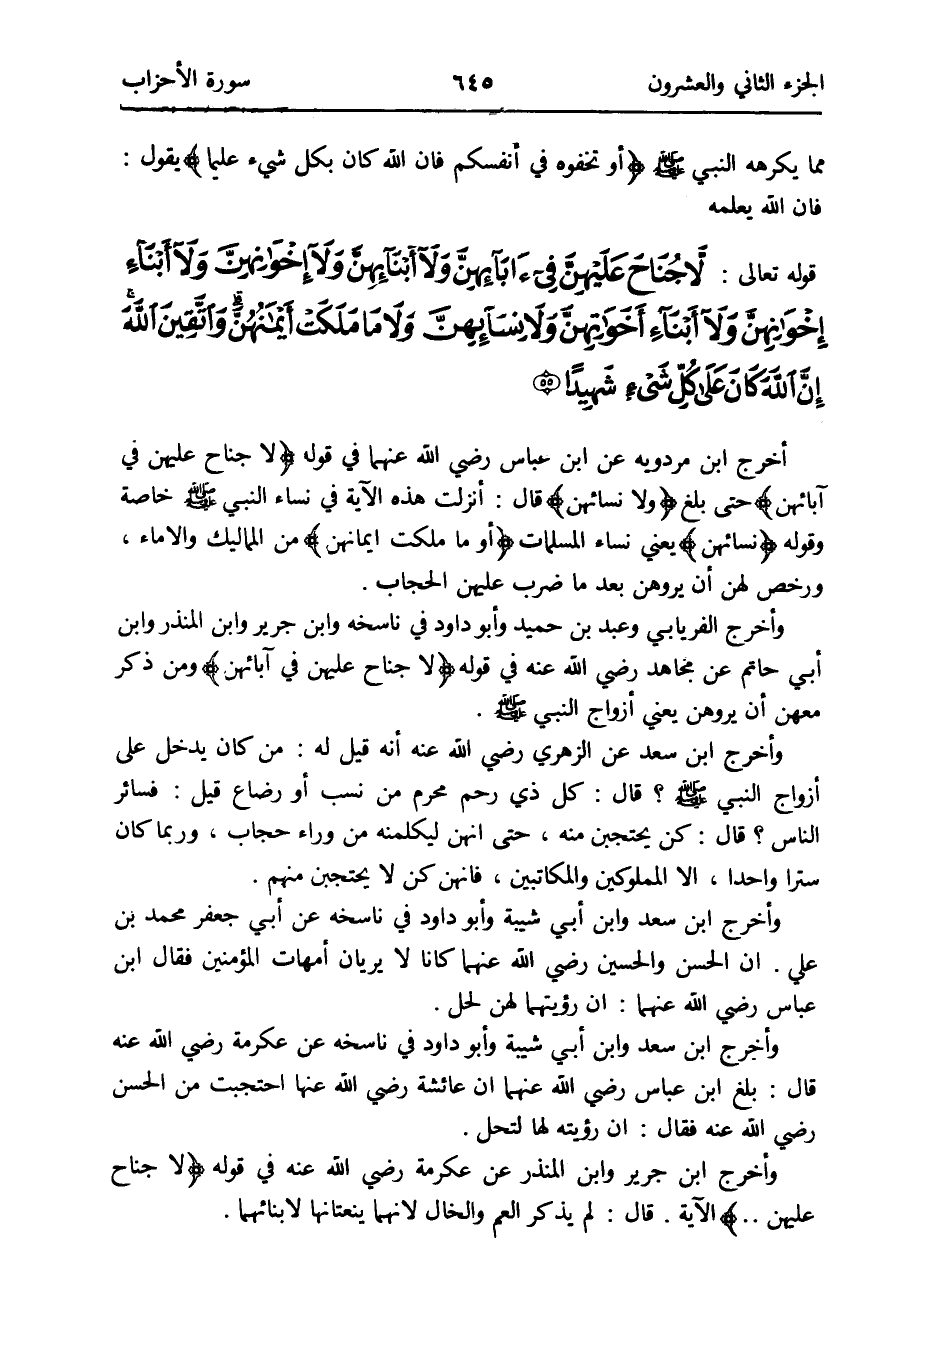 الجزء الثاني والعشرون ٦٤٥ سورة الأحزاب
مما يكرهه النبي ﷺ ﴿أو تخفوه في أنفسكم فان الله كان بكل شيء عليما﴾ يقول :
فان الله يعلمه
قوله تعالى : لَّا جُنَاحَ عَلَيْهِنَّ فِىٓ ءَابَآئِهِنَّ وَلَآ أَبْنَآئِهِنَّ وَلَآ إِخْوَٰنِهِنَّ وَلَآ أَبْنَآءِ
إِخْوَٰنِهِنَّ وَلَآ أَبْنَآءِ أَخَوَٰتِهِنَّ وَلَا نِسَآئِهِنَّ وَلَا مَا مَلَكَتْ أَيْمَٰنُهُنَّ ۗ وَٱتَّقِينَ ٱللَّهَ ۚ
إِنَّ ٱللَّهَ كَانَ عَلَىٰ كُلِّ شَىْءٍ شَهِيدًا ٥٥
أخرج ابن مردويه عن ابن عباس رضي الله عنهما في قوله ﴿لا جناح عليهن في
آبائهن﴾ حتى بلغ ﴿ولا نسائهن﴾ قال : أنزلت هذه الآية في نساء النبي ﷺ خاصة
وقوله ﴿نسائهن﴾ يعني نساء المسلمات ﴿أو ما ملكت ايمانهن﴾ من المماليك والاماء ،
ورخص لهن أن يروهن بعد ما ضرب عليهن الحجاب .
وأخرج الفريابي وعبد بن حميد وأبو داود في ناسخه وابن جرير وابن المنذر وابن
أبي حاتم عن مجاهد رضي الله عنه في قوله ﴿لا جناح عليهن في آبائهن﴾ ومن ذكر
معهن أن يروهن يعني أزواج النبي ﷺ .
وأخرج ابن سعد عن الزهري رضي الله عنه أنه قيل له : من كان يدخل على
أزواج النبي ﷺ ؟ قال : كل ذي رحم محرم من نسب أو رضاع قيل : فسائر
الناس ؟ قال : كن يحتجبن منه ، حتى انهن ليكلمنه من وراء حجاب ، وربما كان
سترا واحدا ، الا المملوكين والمكاتبين ، فانهن كن لا يحتجبن منهم .
وأخرج ابن سعد وابن أبي شيبة وأبو داود في ناسخه عن أبي جعفر محمد بن
علي . ان الحسن والحسين رضي الله عنهما كانا لا يريان أمهات المؤمنين فقال ابن
عباس رضي الله عنهما : ان رؤيتهما لهن لحل .
وأخرج ابن سعد وابن أبي شيبة وأبو داود في ناسخه عن عكرمة رضي الله عنه
قال : بلغ ابن عباس رضي الله عنهما ان عائشة رضي الله عنها احتجبت من الحسن
رضي الله عنه فقال : ان رؤيته لها لتحل .
وأخرج ابن جرير وابن المنذر عن عكرمة رضي الله عنه في قوله ﴿لا جناح
عليهن ..﴾ الآية . قال : لم يذكر العم والخال لانهما ينعتانها لابنائهما .